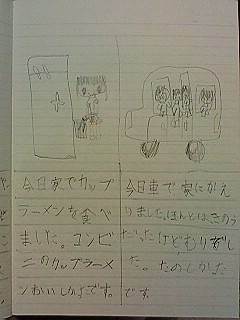 今日家でカップ
ラーメンを食べ
ました。コンビ
ニのカップラーメ
ンわいしかたです。
今日車で家にかえ
りました。ほんとはきのう
だったけどむりでし
た。たのしかった
です。